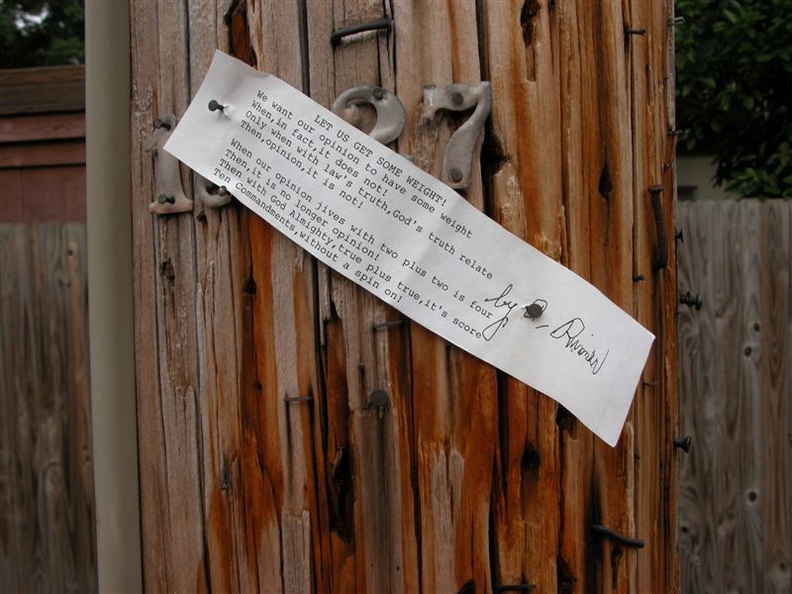 27
LET US GET SOME WEIGHT!
We want our opinion to have some weight
When,in fact,it does not!
Only when with law's truth,God's truth relate
Then,opinion,it is not!
When our opinion jives with two plus two is four
Then,it is no longer opinion!
Then with God Almighty,true plus true,it's score
Ten Commandments,without a spin on!
by